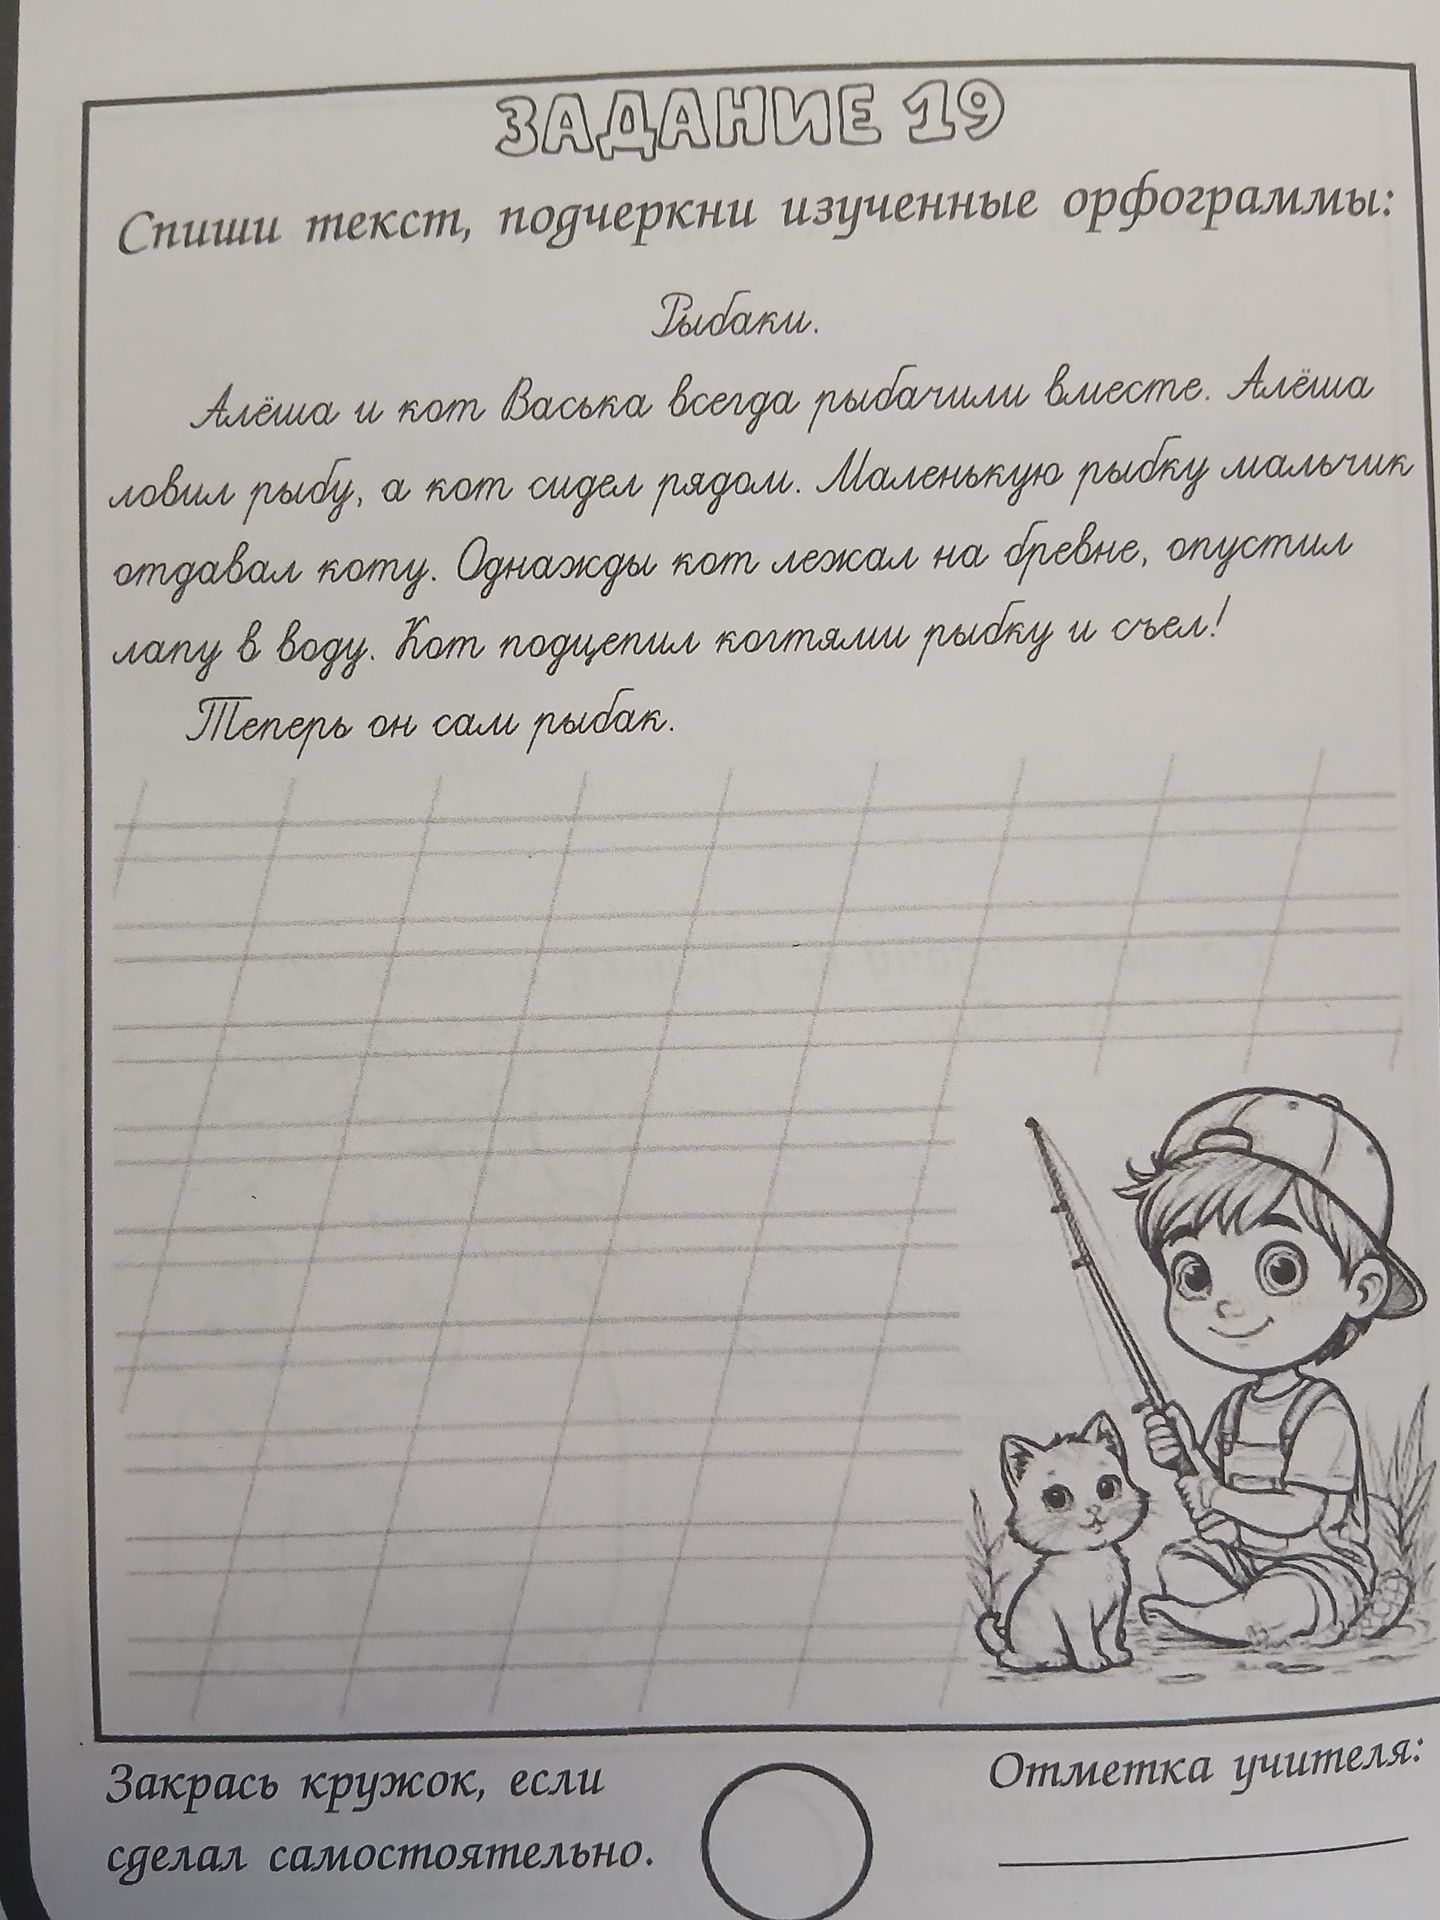 ЗАДАНИЕ 19
Спиши текст, подчеркни изученные орфограммы:
Рыбаки.
Алёша и кот Васька всегда рыбачили вместе. Алёша
ловил рыбу, а кот сидел рядом. Маленькую рыбку мальчик
отдавал коту. Однажды кот лежал на бревне, опустил
лапу в воду. Кот подцепил когтями рыбку и съел!
Теперь он сам рыбак.
Закрась кружок, если
сделал самостоятельно.
Отметка учителя: